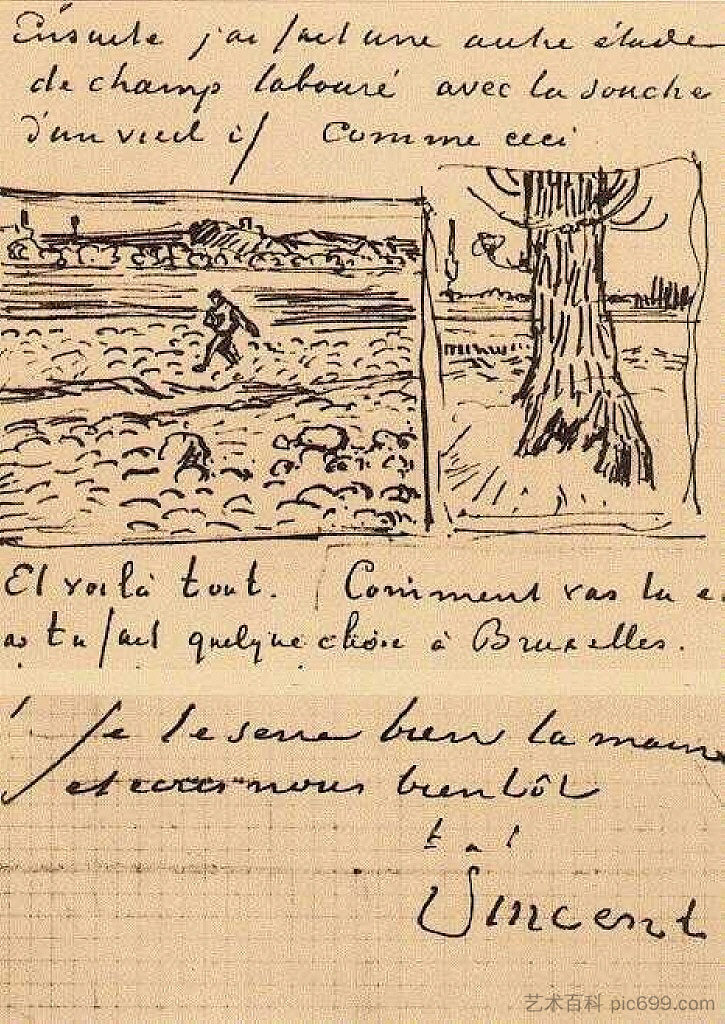 Ensuite j'ai fait une autre étude
de champ labouré avec la souche
d'un vieil if Comme ceci
Et voilà tout. Comment vas tu e
as tu fait quelque chose à Bruxelles.
Je te serre bien la main
et nous bientôt
t à t
Vincent
艺术百科 pic699.com